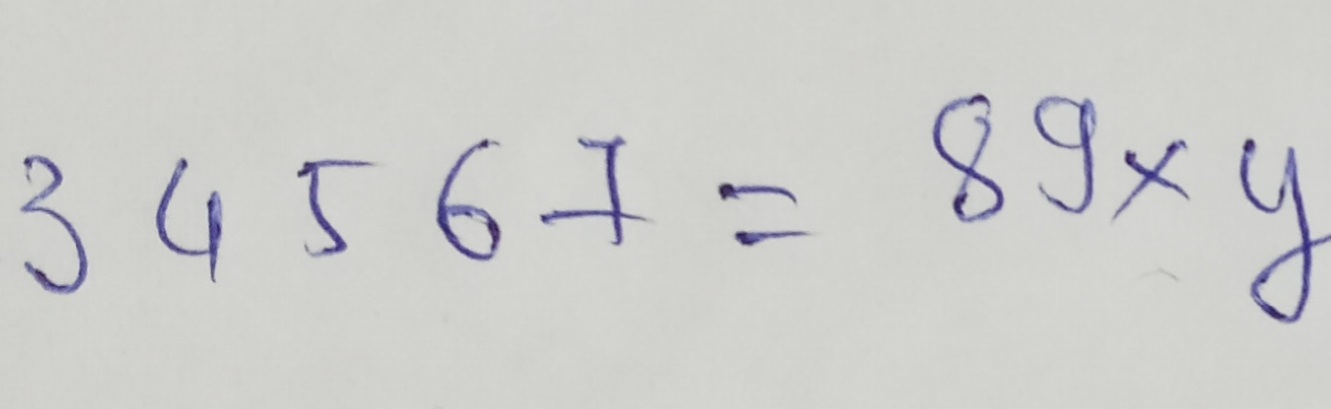 3 4 5 6 7 = 89xy